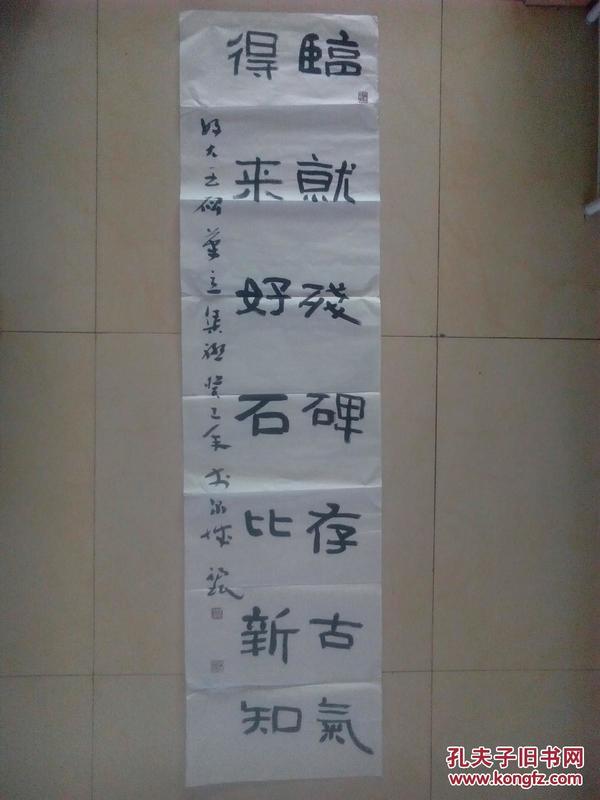 臨就殘碑存古氣
得来好石比新知
好大王碑
集聯癸巳
孔夫子旧书网
www.kongfz.com